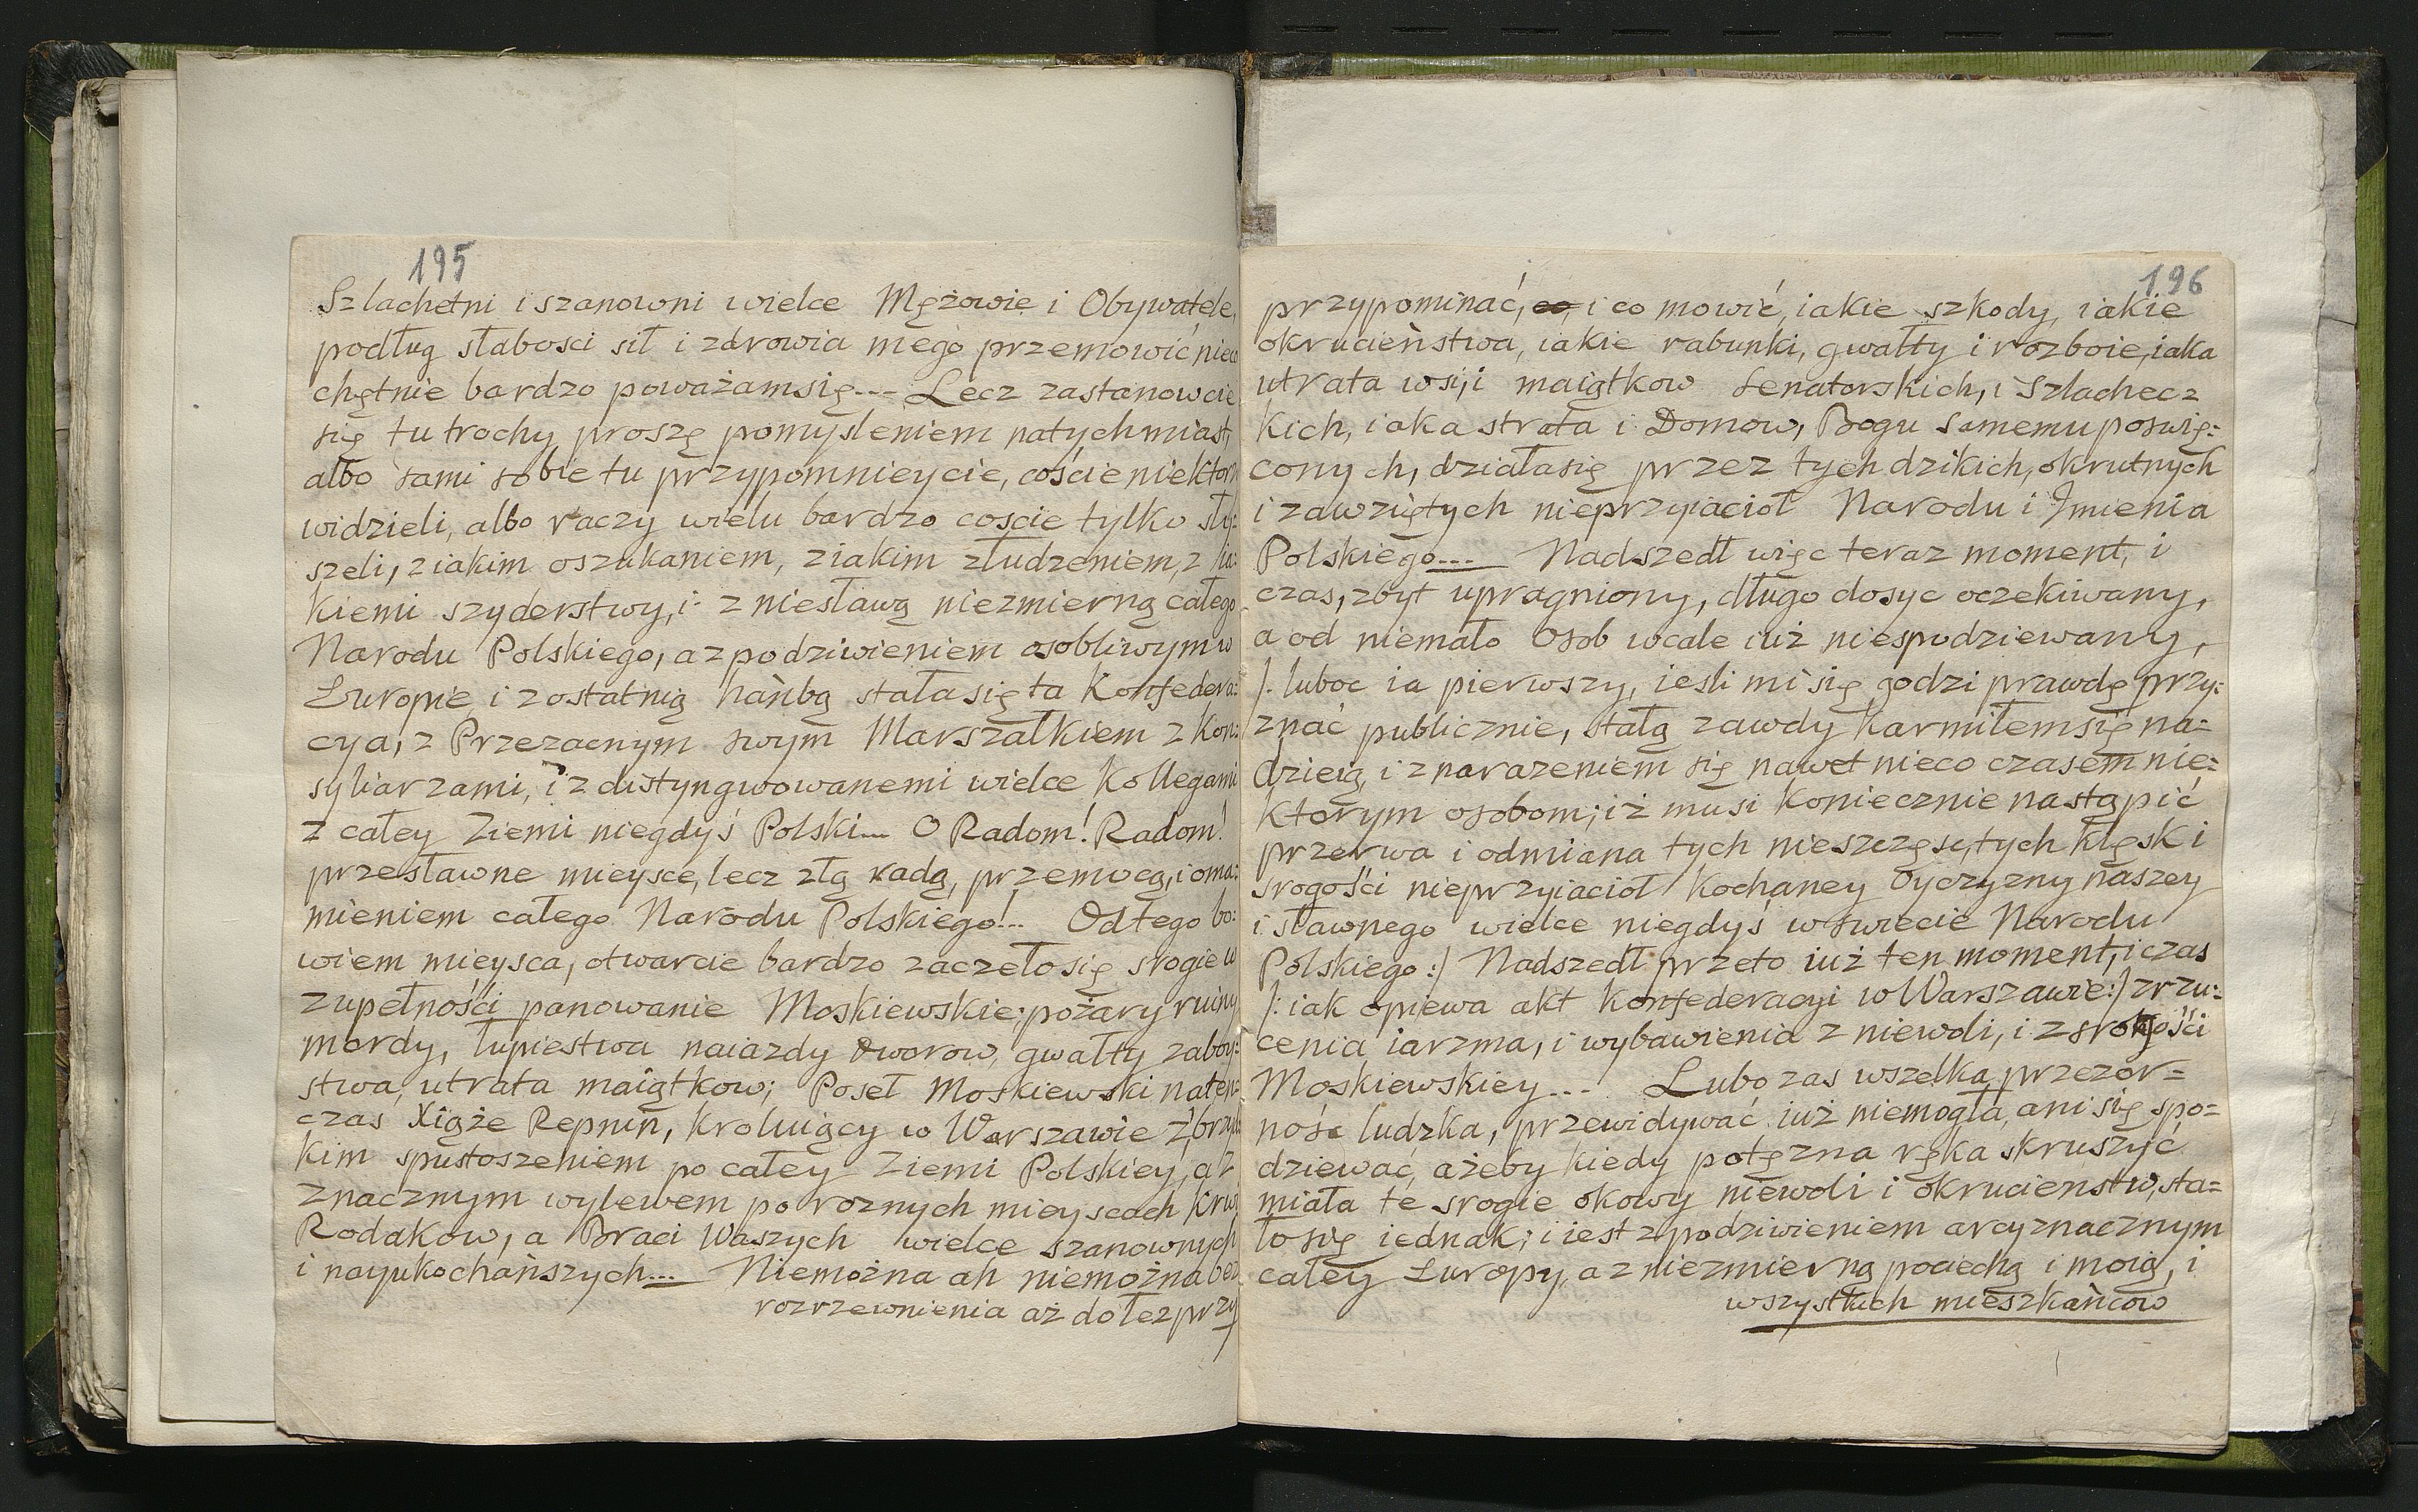 195
Szlachetni i szanowni wielce Mężowie i Obywatele,
podług słabosci sił i zdrowia mego przemowić niew
chętnie bardzo poważamsię--- Lecz zastanowcie
się tu trochy proszę pomysleniem natychmiast,
albo sami sobie tu przypomnieycie, coście niektorzy
widzieli, albo raczy wielu bardzo coscie tylko sły:
szeli, z iakim oszukaniem, z iakim złudzeniem, z ia:
kiemi szyderstwy, i z niesławą niezmierną całego
Narodu Polskiego, a z podziwieniem osobliwym w
Europie, i z ostatnią hańbą stała się ta Konfedera:
cya, z Przezacnym swym Marszałkiem z Kon:
syliarzami, i z distyngwowanemi wielce Kollegami
z całey Ziemi niegdyś Polski... O Radom! Radom!
przesławne mieysce, lecz złą radą, przemocą, i oma:
mieniem całego Narodu Polskiego!... Od tego bo:
wiem mieysca, otwarcie bardzo zaczeło się srogie w
zupełności panowanie Moskiewskie; pożary ruiny
mordy, łupiestwa naiazdy dworow, gwałty zaboy:
stwa, utrata maiątkow; Poseł Moskiewski naten
czas Xiąże Repnin, Kroluiący w Warszawie z brzyd
kim spustoszeniem po całey Ziemi Polskiey, a z
znacznym wylewem po roznych mieyscach krwi
Rodakow, a Braci Waszych wielce szanownych
i nayukochańszych... Niemożna ah niemożna bez
rozrzewnienia aż do łez przy
196
przypominać, co, i co mowić, iakie szkody, iakie
okrucieństwa, iakie rabunki, gwałty i rozboie, iaka
utrata wsi, i maiątkow Senatorskich, i Szlachec
kich, iaka strata i Domow, Bogu samemu poswię:
conych, działasię przez tych dzikich, okrutnych
i zawziętych nieprzyiacioł Narodu i Jmienia
Polskiego... Nadszedł więc teraz moment, i
czas, zbyt upragniony, długo dosyc oczekiwany,
a od niemało osob wcale iuż niespodziewany,
/: luboc ia pierwszy, iesli mi się godzi prawdę przy:
znać publicznie, stałą zawdy karmiłem się na=
dzieią, i z narazeniem się nawet nieco czasem nie=
ktorym osobom; iż musi koniecznie nastąpić
przerwa i odmiana tych nieszczęsc, tych klęsk i
srogości nieprzyiacioł Kochaney Oyczyzny naszey
i sławnego wielce niegdyś w swiecie Narodu
Polskiego :/ Nadszedł przeto iuż ten moment, i czas
/: iak opiewa akt Konfederacyi w Warszawie :/ zrzu:
cenia iarzma, i wybawienia z niewoli, i z srogości
Moskiewskiey... Lubo zas wszelka przezor=
ność ludzka, przewidywać iuż niemogła, ani się spo=
dziewać, ażeby kiedy potęzna ręka skruszyć
miała te srogie okowy niewoli i okrucienstw, sta=
ło się iednak; i iest z podziwieniem arcyznacznym
całey Europy, a z niezmierną pociechą i moią, i
wszystkich mieszkańcow